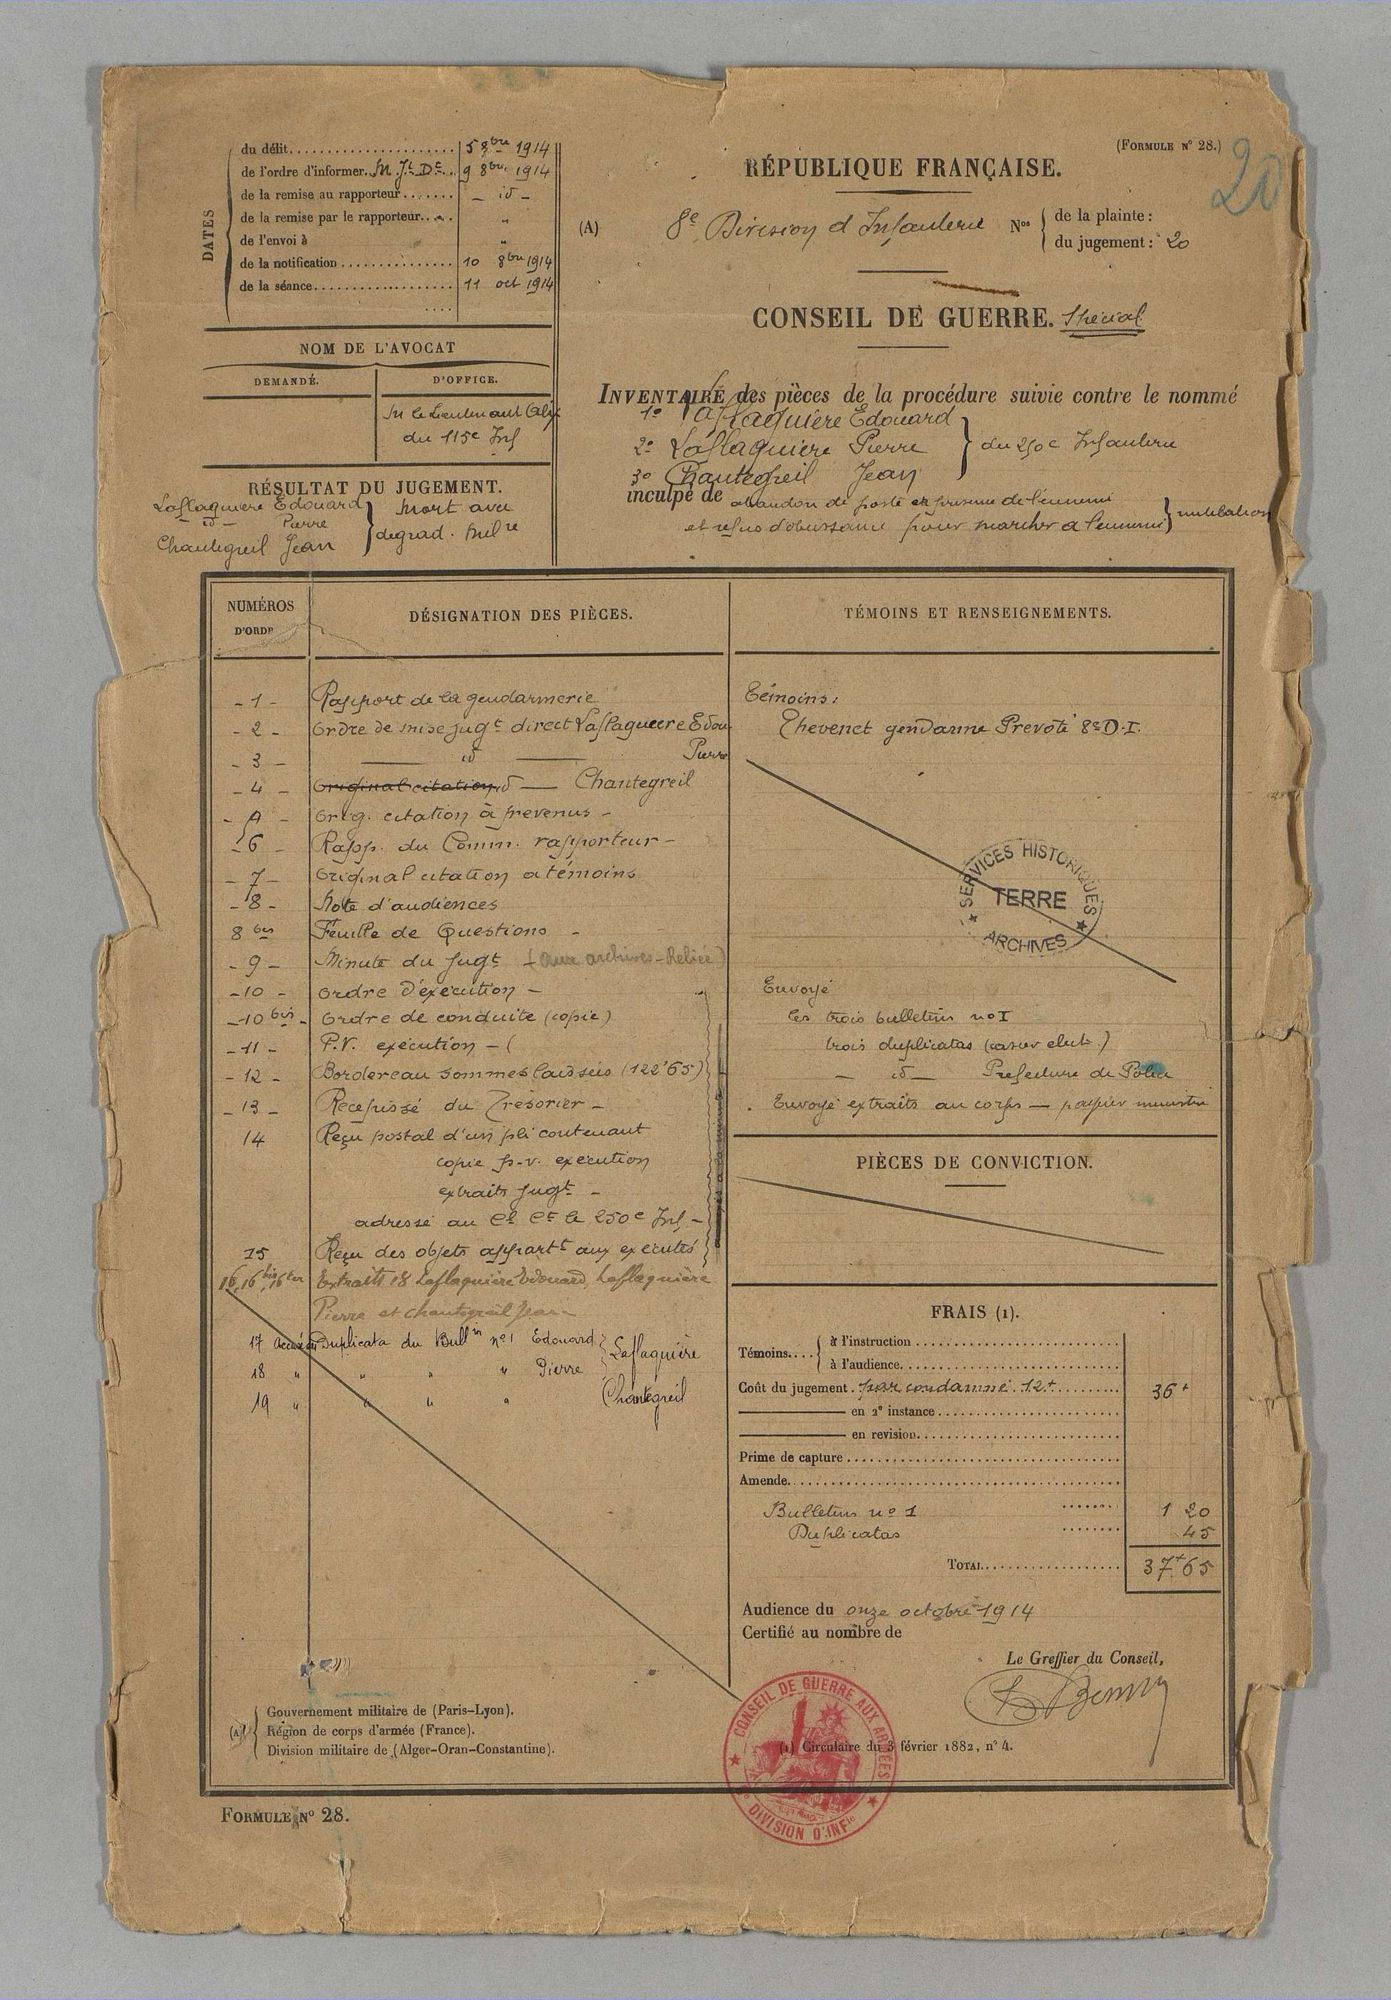 (FORMULE N° 28.)
20
DATES
du délit 5 8bre 1914
de l'ordre d'informer. 9 8bre 1914
de la remise au rapporteur — id —
de la remise par le rapporteur "
de l'envoi à "
de la notification 10 8bre 1914
de la séance 11 oct 1914
NOM DE L'AVOCAT
DEMANDÉ.
D'OFFICE.
M le Lieutenant
du 115e Inf
RÉSULTAT DU JUGEMENT.
Laflaquiere Edouard
id — Pierre
Chantegreil Jean
Mort avec
degrad. milre
RÉPUBLIQUE FRANÇAISE.
(A) 8e Division d'Infanterie
Nos de la plainte :
du jugement : 20
CONSEIL DE GUERRE. Spécial
INVENTAIRE des pièces de la procédure suivie contre le nommé
1° Laflaquière Edouard
2° Laflaquière Pierre
3° Chantegreil Jean
du 250e Infanterie
inculpé de abandon de poste en présence de l'ennemi
et refus d'obéissance pour marcher à l'ennemi mutilation
NUMÉROS D'ORDRE
DÉSIGNATION DES PIÈCES.
- 1 - Rapport de la gendarmerie
- 2 - Ordre de mise jugt direct Laflaquiere Edou
- 3 - id Pierre
- 4 - Original citation id — Chantegreil
- 5 - Orig. citation à prevenus -
- 6 Rapp. du Comm. rapporteur -
- 7 - Original citation a témoins
- 8 - Note d'audiences
8 bis Feuille de Questions -
- 9 - Minute du Jugt (aux archives - Reliée)
- 10 - Ordre d'éxécution -
- 10 bis - Ordre de conduite (copie)
- 11 - P.V. exécution -
- 12 - Bordereau sommes laissées (122f65)
- 13 - Recepissé du Trésorier -
14 Reçu postal d'un pli contenant
copie p.v. exécution
extraits Jugt -
adressé au Cl Ct le 250e Inf -
15 Reçu des objets appartt aux exécutés
16, 16 bis, 16 ter Extraits 18 Laflaquière Edouard, Laflaquière
Pierre et Chantegreil Jean
17 Duplicata du Bullin n°1 Edouard Laflaquière
18 " " " " Pierre
19 " " " " Chantegreil
TÉMOINS ET RENSEIGNEMENTS.
Témoins :
Thevenet gendarme Prevoté 8e D.I.
SERVICES HISTORIQUES
TERRE
ARCHIVES
Envoyé
les trois bulletins no I
trois duplicatas (casier elect.)
— id — Prefecture de Police
Envoyé extraits au corps —
PIÈCES DE CONVICTION.
FRAIS (1).
Témoins à l'instruction
à l'audience
Coût du jugement par condamné 12f 36f
en 2e instance
en revision
Prime de capture
Amende
Bulletins n° 1 1 20
Duplicatas 45
TOTAL 37f65
Audience du onze octobre 1914
Certifié au nombre de
Le Greffier du Conseil,
(A) Gouvernement militaire de (Paris-Lyon).
Région de corps d'armée (France).
Division militaire de (Alger-Oran-Constantine).
(1) Circulaire du 3 février 1882, n° 4.
CONSEIL DE GUERRE AUX ARMÉES
DIVISION D'INFie
FORMULE N° 28.